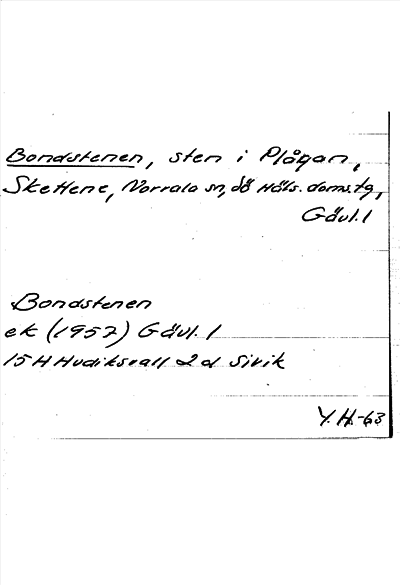 Bondstenen, sten i Plågan,
Skettene, Norrala sn, Sö Häls. doms. tg,
Gävl. l
Bondstenen
ek (1957) Gävl. l
15 H Hudiksvall 2 d Sivik
Y. H.-63